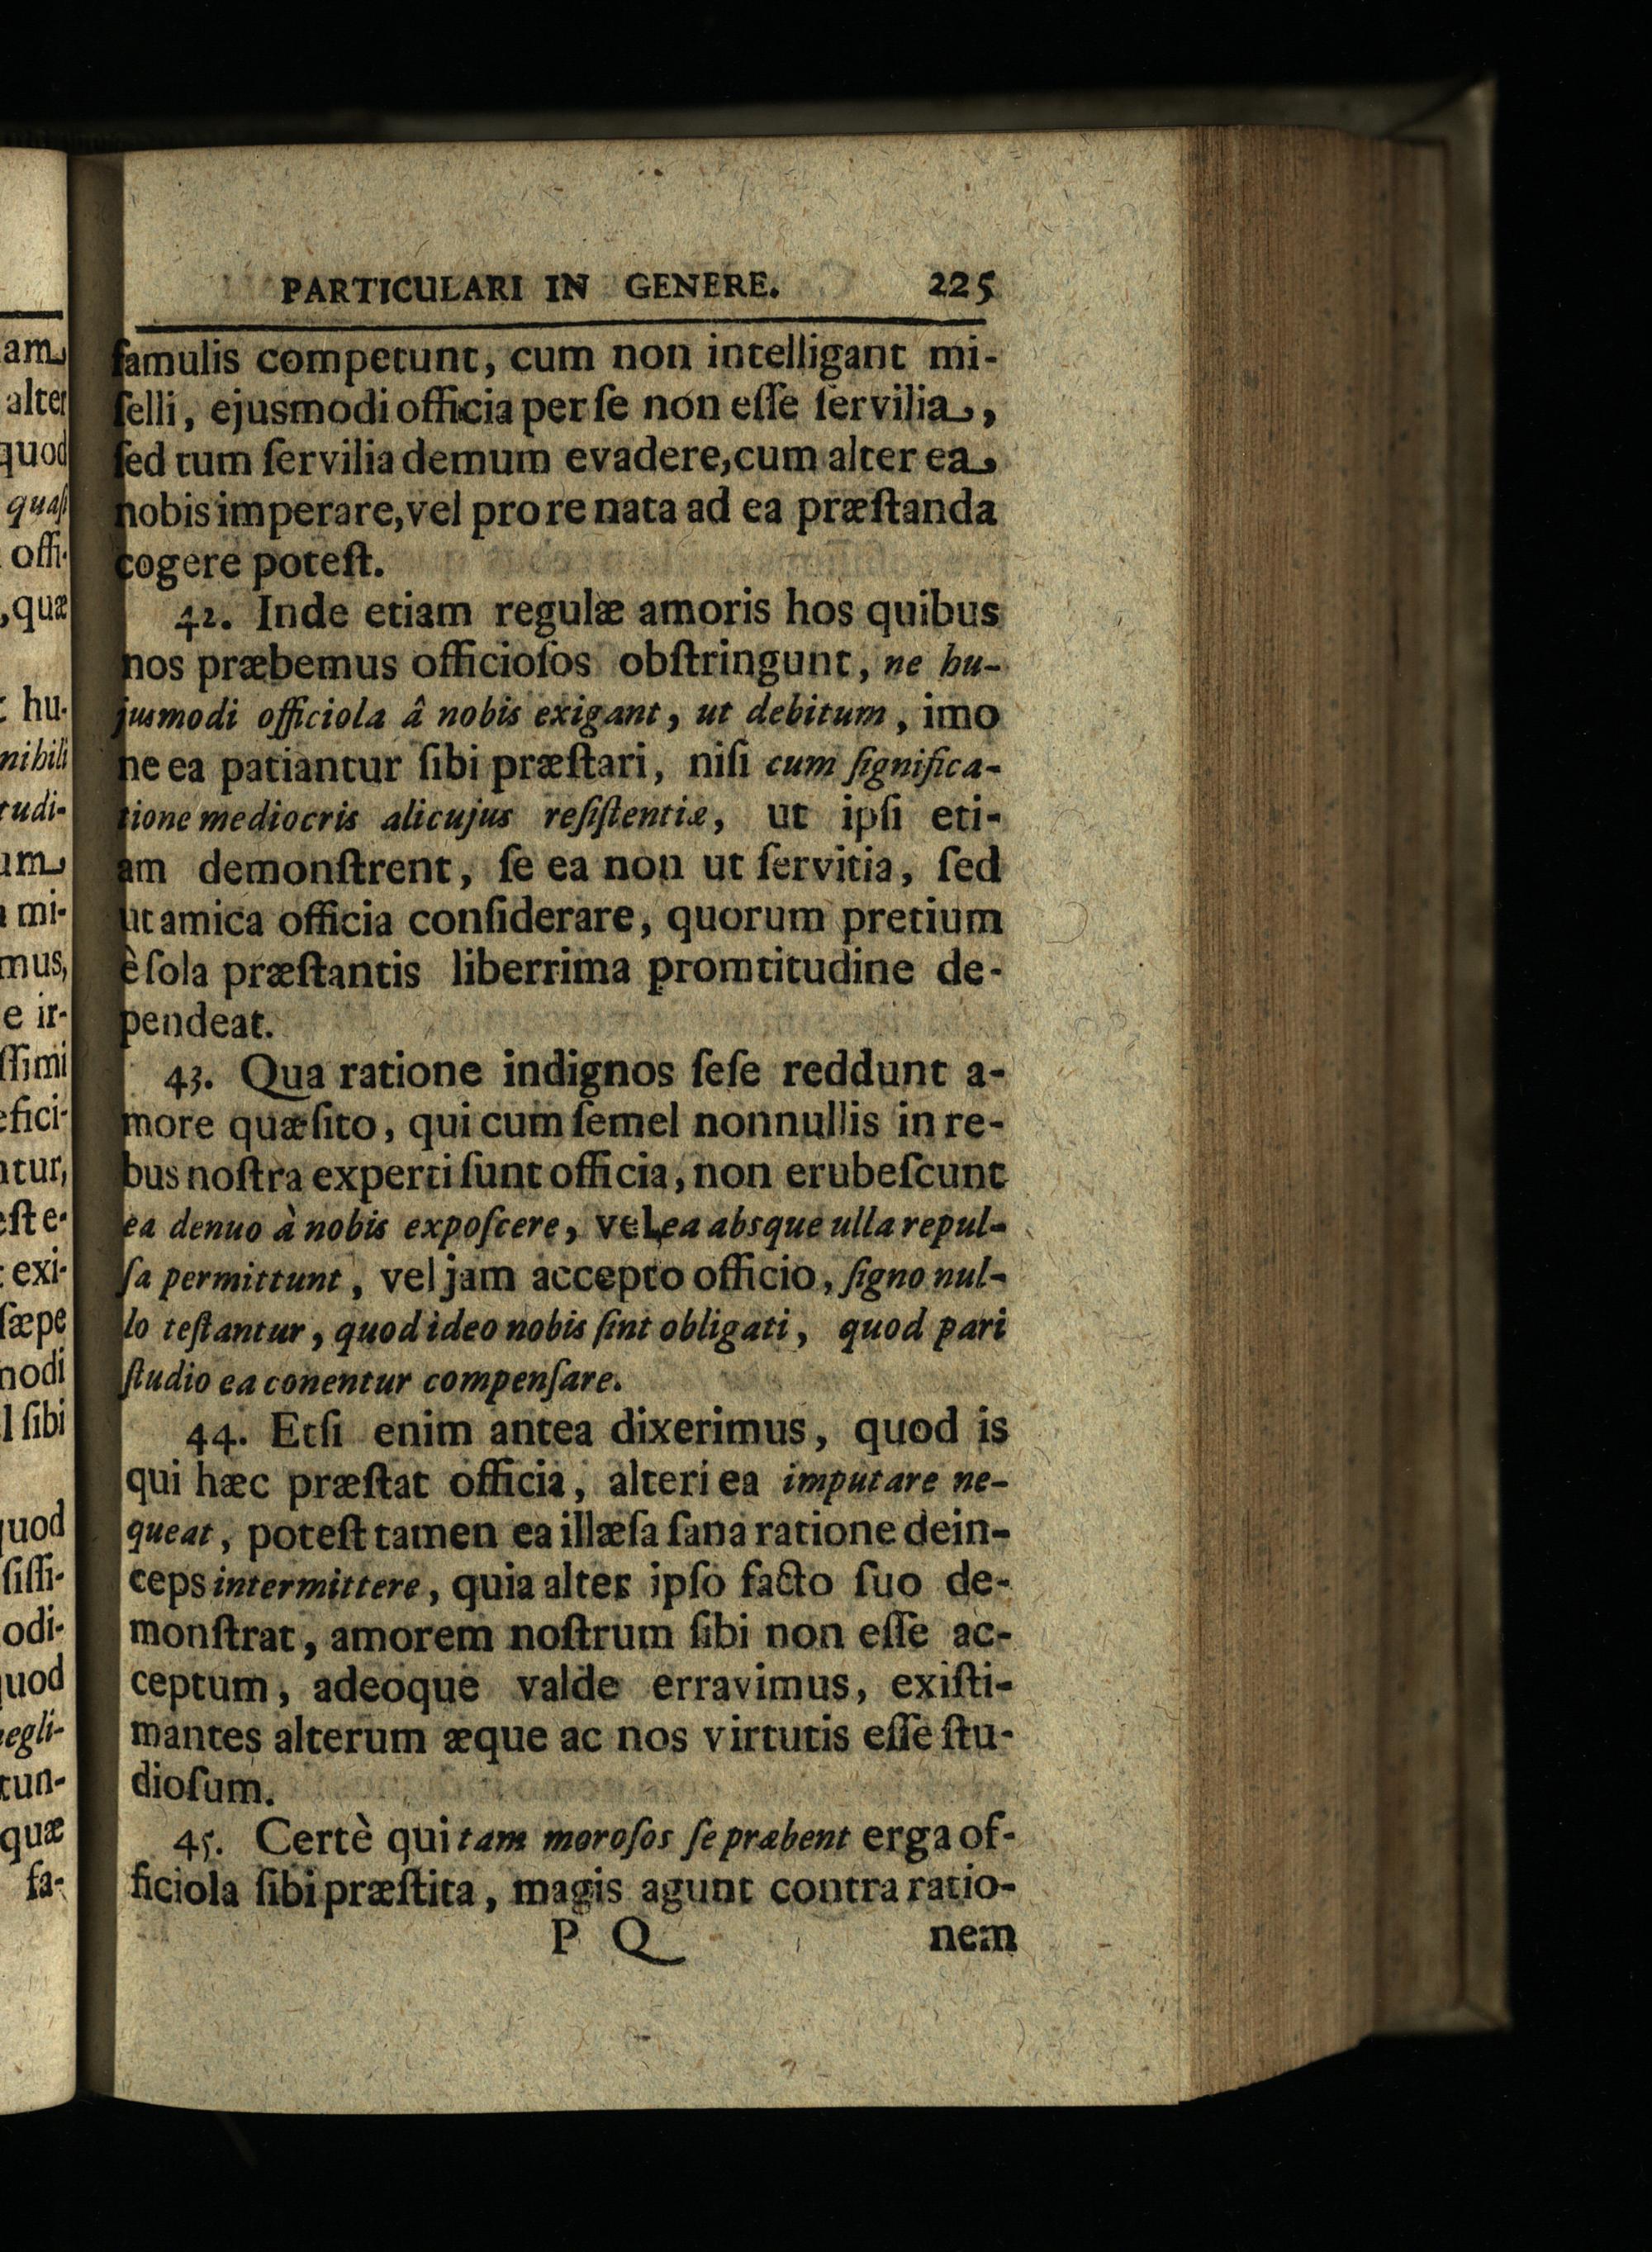 PARTICULARI IN GENERE. 225
famulis competunt, cum non intelligant mi-
ſelli, ejusmodi officia per ſe non eſſe ſervilia,
ſed tum ſervilia demum evadere, cum alter ea
nobis imperare, vel pro re nata ad ea præſtanda
cogere poteſt.
42. Inde etiam regulæ amoris hos quibus
nos præbemus officioſos obſtringunt, ne hu-
jusmodi officiola â nobis exigant, ut debitum, imo
ne ea patiantur ſibi præſtari, niſi cum ſignifica-
tione mediocris alicujus reſiſtentiæ, ut ipſi eti-
am demonſtrent, ſe ea non ut ſervitia, ſed
ut amica officia conſiderare, quorum pretium
è ſola præſtantis liberrima promtitudine de-
pendeat.
43. Qua ratione indignos ſeſe reddunt a-
more quæſito, qui cum ſemel nonnullis in re-
bus noſtra experti ſunt officia, non erubeſcunt
ea denuo à nobis expoſcere, vel ea absque ulla repul-
ſa permittunt, vel jam accepto officio, ſigno nul-
lo teſtantur, quod ideo nobis ſint obligati, quod pari
ſtudio ea conentur compenſare.
44. Etſi enim antea dixerimus, quod is
qui hæc præſtat officia, alteri ea imputare ne-
queat, poteſt tamen ea illæſa ſana ratione dein-
ceps intermittere, quia alter ipſo facto ſuo de-
monſtrat, amorem noſtrum ſibi non eſſe ac-
ceptum, adeoque valde erravimus, exiſti-
mantes alterum æque ac nos virtutis eſſe ſtu-
dioſum.
45. Certè qui tam moroſos ſe præbent erga of-
ficiola ſibi præſtita, magis agunt contra ratio-
P Q nem